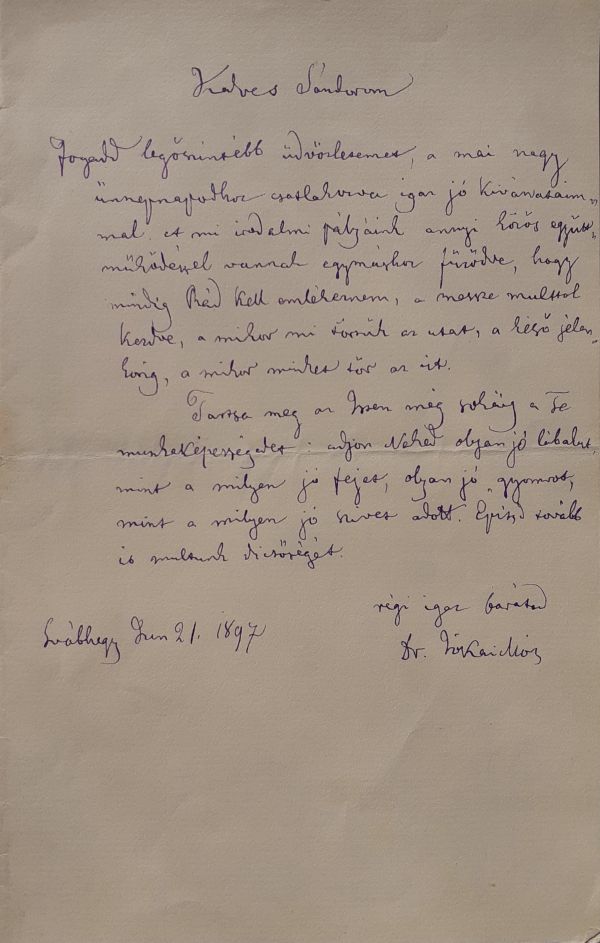 Kedves Sándorom
Fogadd legőszintébb üdvözletemet, a mai nagy
ünnepnapodhoz csatlakozva igaz jó kivánataim„
mal. et mi irodalmi pályáink annyi közös együtt„
működéssel vannak egymáshoz fűződve, hogy
mindig Rád kell emlékeznem, a messze multtol
kezdve, a mikor mi törtük az utat, a késő jelen„
korig, a mikor minket tör az út.
Tartsa meg az Isten még sokáig a Te
munkaképességedet: adjon Neked olyan jó lábakat,
mint a milyen jó fejet, olyan jó gyomrot,
mint a milyen jó szivet adott. Epitsd tovább
is multunk dicsőségét.
régi igaz barátod
Svábhegy Jun 21. 1897
Dr. Jókai Mór